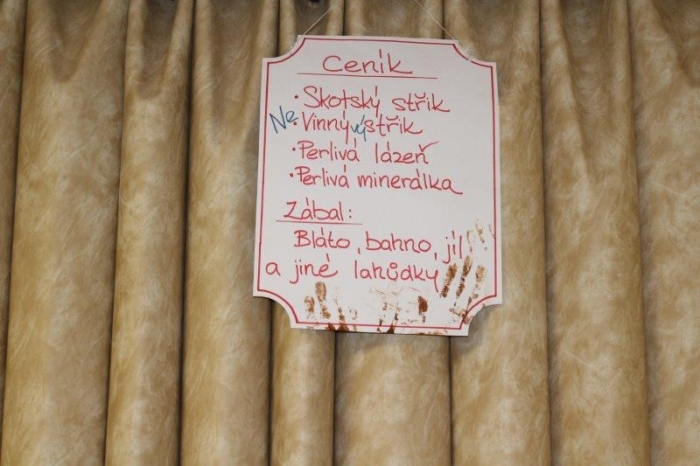 Ceník
• Skotský střik
Ne • Vinný výstřik
• Perlivá lázeň
• Perlivá minerálka
Zábal:
Bláto, bahno, jíl
a jiné lahůdky